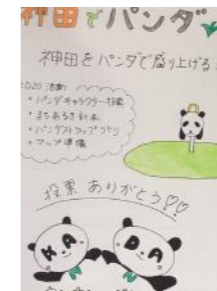 神田でパンダ
神田をパンダで盛り上げる
2020 活動
・パンダキャラクター投票
・まちあるき計画
・パンダストラップづくり
・マップ準備
投票 ありがとう♡♡
KA
DA